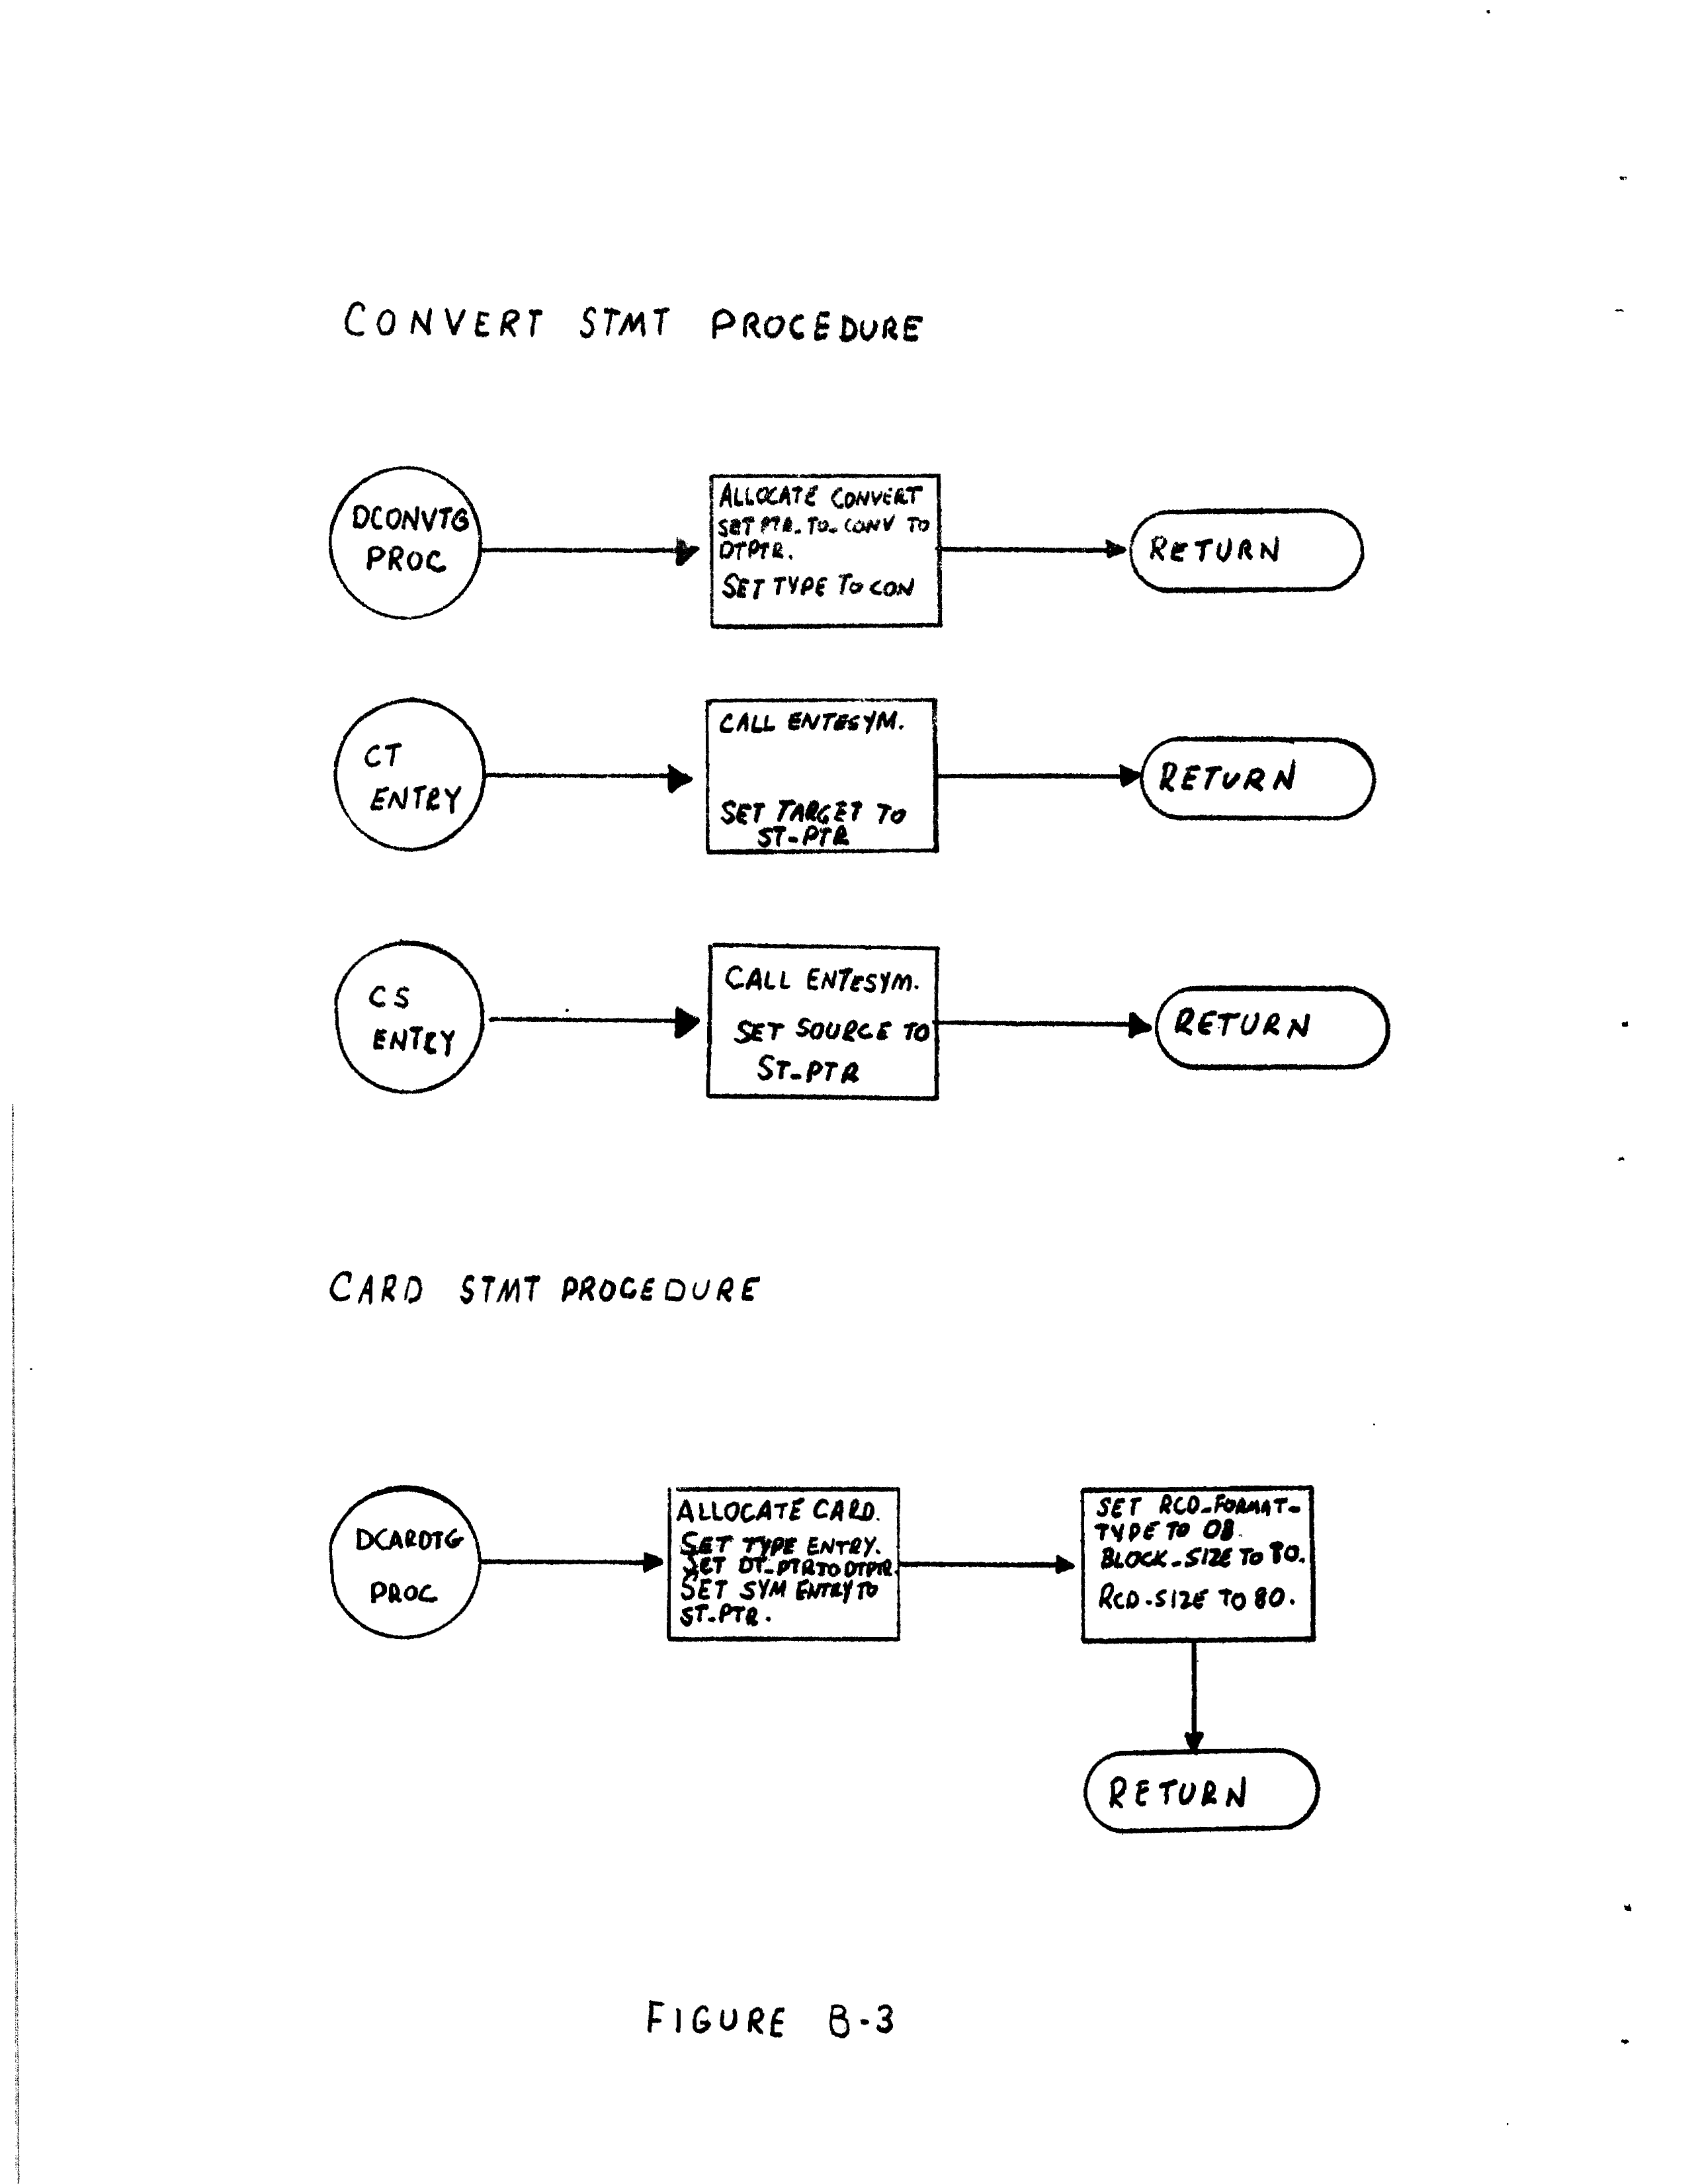 CONVERT STMT PROCEDURE
DCONVTG
PROC
ALLOCATE CONVERT
SET PTR_TO_CONV TO
DTPTR.
SET TYPE TO CON
RETURN
CT
ENTRY
CALL ENTESYM.
SET TARGET TO
ST_PTR
RETURN
CS
ENTRY
CALL ENTESYM.
SET SOURCE TO
ST_PTR
RETURN
CARD STMT PROCEDURE
DCARDTG
PROC
ALLOCATE CARD.
SET TYPE ENTRY.
SET DT_PTR TO DTPTR.
SET SYM ENTRY TO
ST_PTR.
SET RCD_FORMAT_
TYPE TO
BLOCK_SIZE TO 80.
RCD_SIZE TO 80.
RETURN
FIGURE B-3